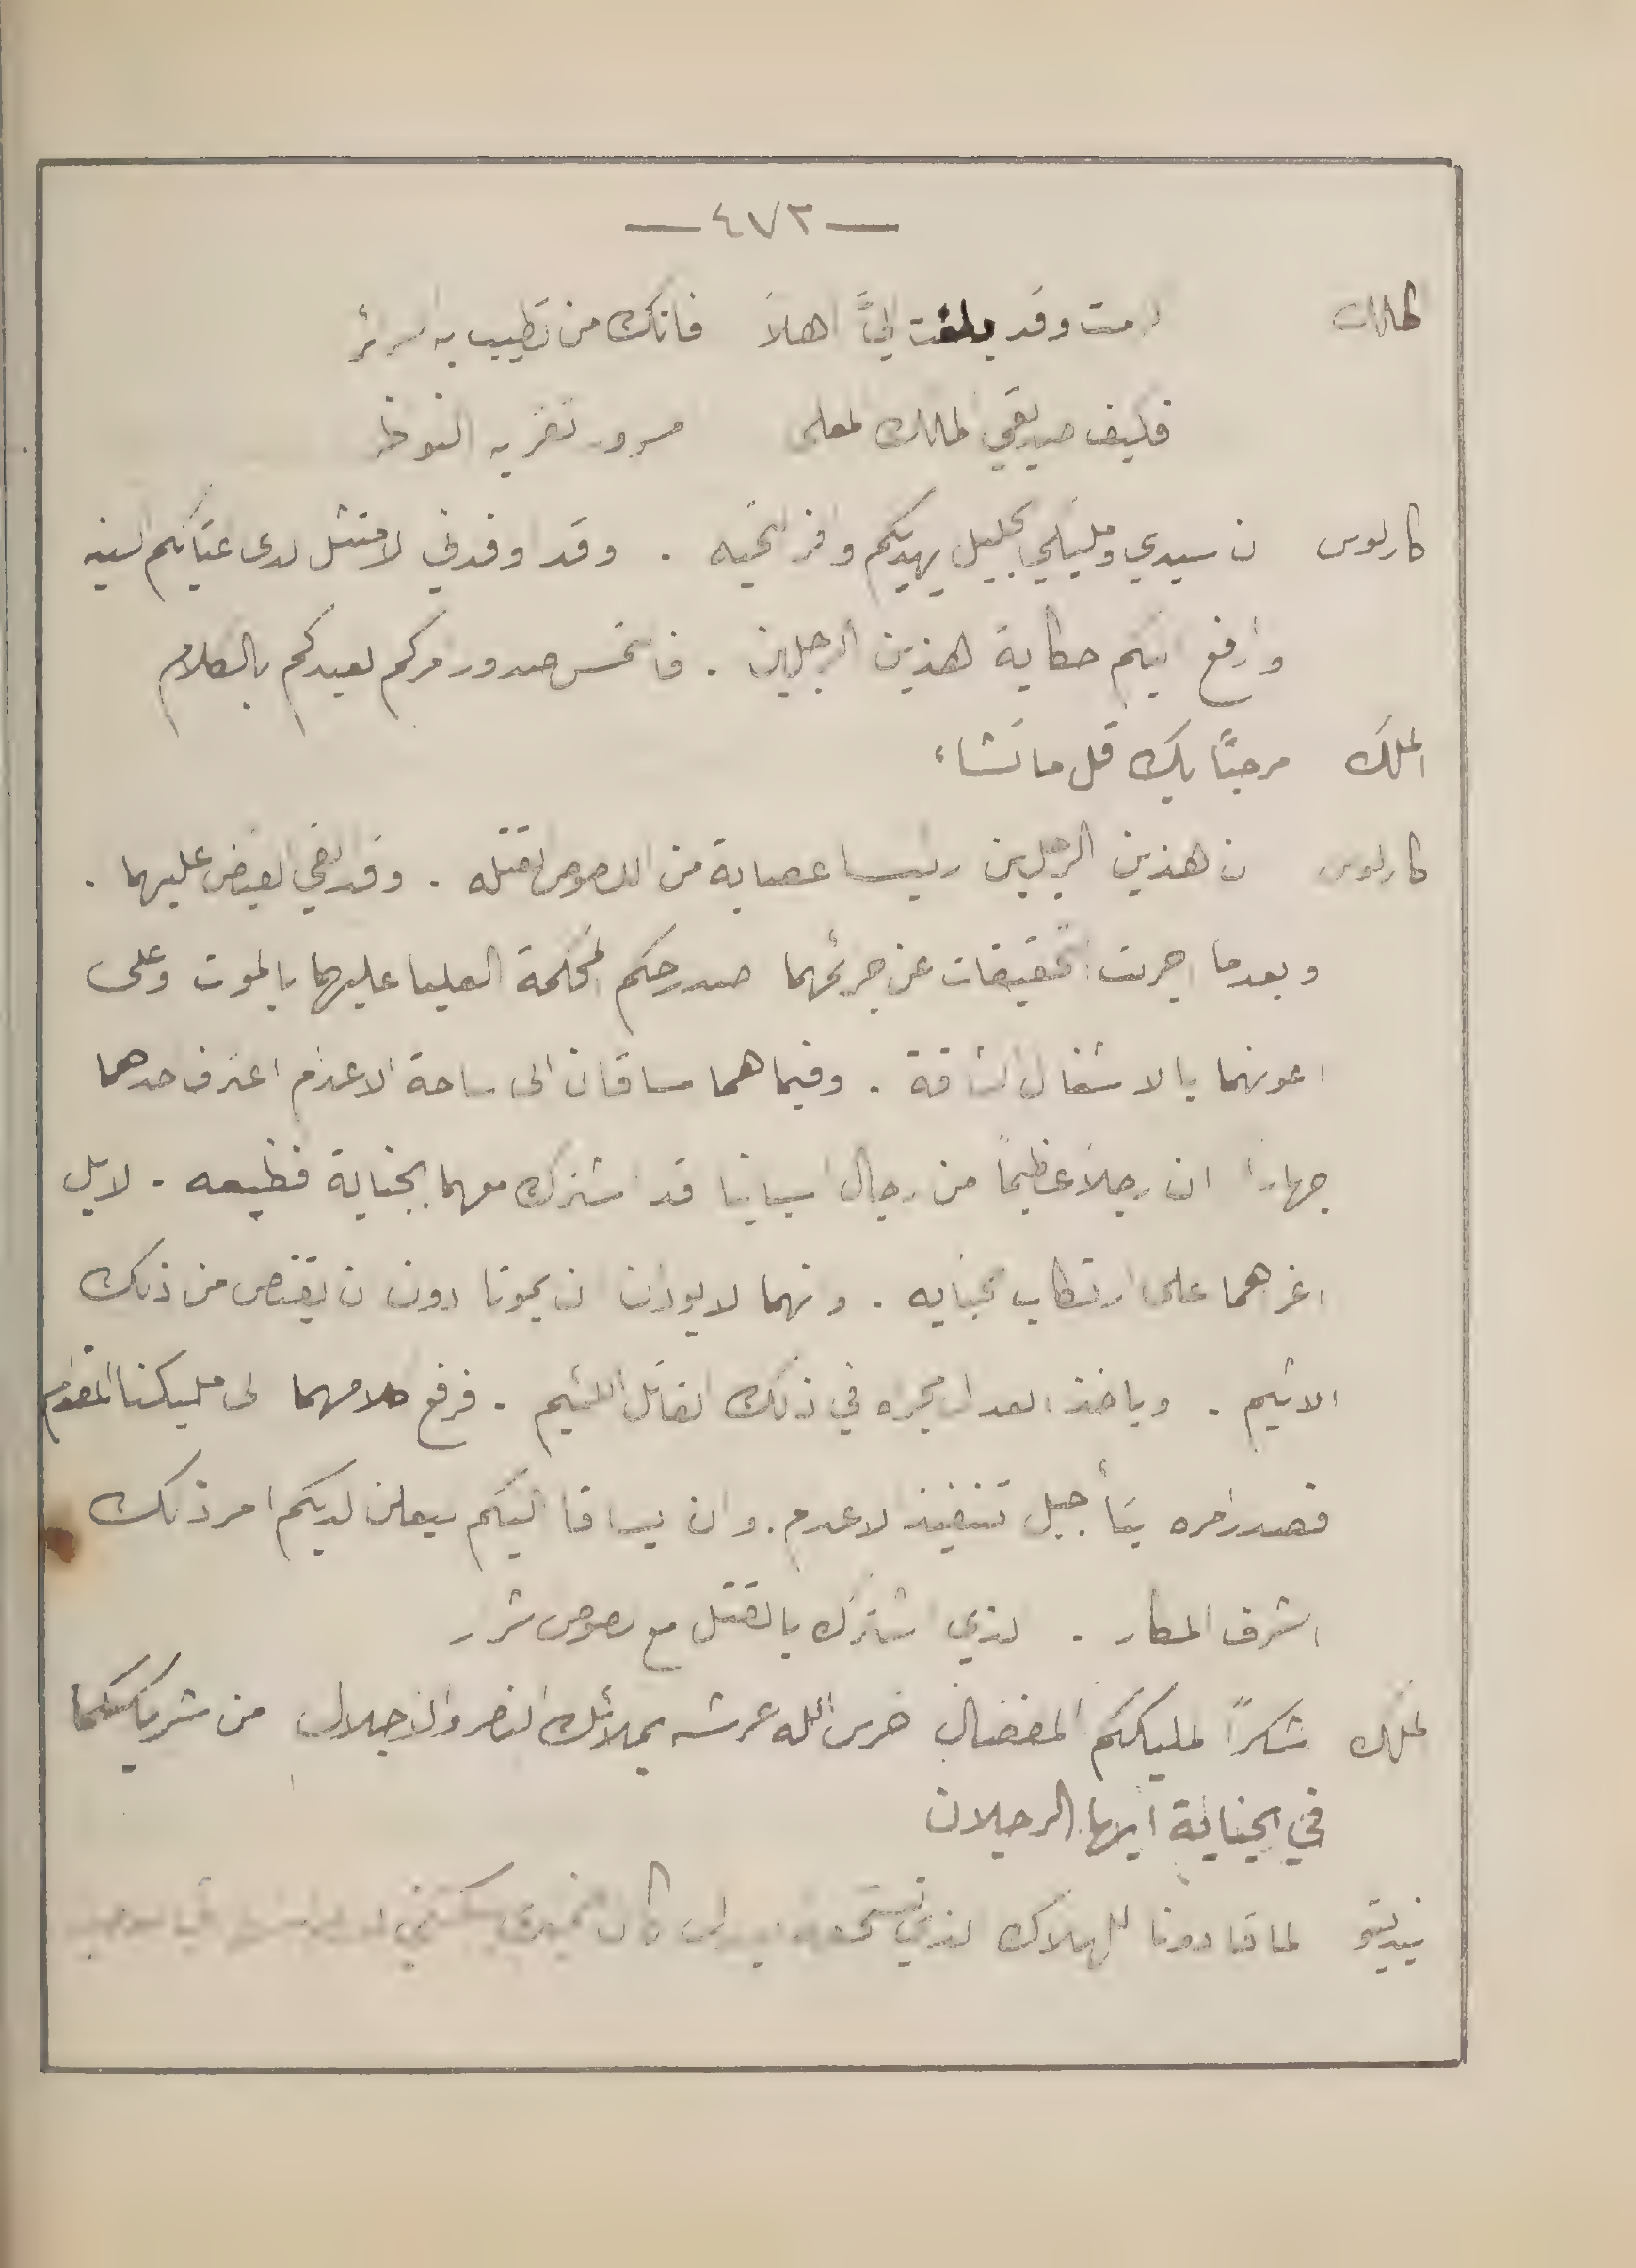 —٤٧٢—
الملك لامت وقد بلغت اليَّ اهلاً فانك من تطيب به السرائر
فكيف صديقي الملك المعلى سرور تقر به النواظر
كارلوس ان سيدي ومليكي الجليل يهديكم وافر التحيه . وقد اوفدني لامتثل لدى عتباتكم السنيه
وارفع اليكم حكاية هذين الرجلين . فالتمس صدور امركم لعبدكم بالكلام
الملك مرحبًا بك قل ما تشاء
كارلوس ان هذين الرجلين رئيسا عصابة من اللصوص القتله . وقد القي القبض عليهما .
وبعدما اجريت التحقيقات عن جرائمهما صدر حكم المحكمة العليا عليهما بالموت وعلى
اعوانهما بالاشغال الشاقة . وفيما هما مساقان الى ساحة الاعدام اعترف احدهما
جهارا ان رجلاً عظيماً من رجال اسبانيا قد اشترك معهما بجناية فظيعه . لا بل
اغراهما على ارتكاب الجنايه . وانهما لا يودان ان يموتا دون ان يقتص من ذلك
الاثيم . وياخذ العدل مجراه في ذلك القاتل اللئيم . فرفع كلامهما الى مليكنا المقدام
فصدر امره بتأجيل تنفيذ الاعدام . وان يساقا اليكم ليعلن لديكم امر ذلك
الشرف المكار . الذي اشترك بالقتل مع لصوص اشرار
الملك شكراً لمليككم المفضال حرس الله عرشه بملائك النصر والاجلال من شريككما
في الجناية ايها الرجلان
لما قادونا للهلاك الذي